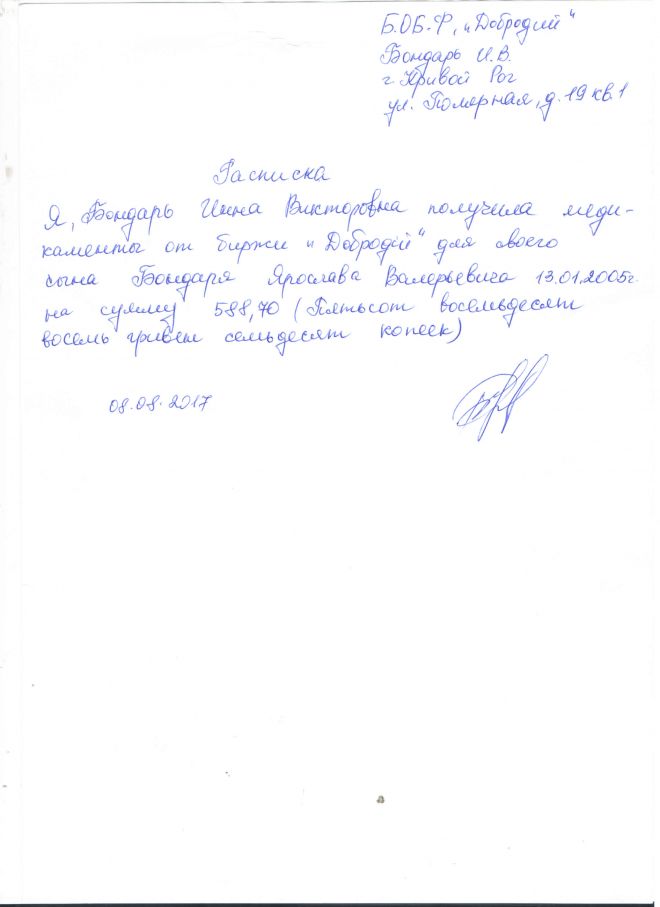 Б.ОБ.Ф. „Добродий"
Бондарь И.В.
г. Кривой Рог
ул. Полярная, д. 19 кв. 1
Расписка
Я, Бондарь Инна Викторовна получила меди-
каменты от биржи „Добродій" для своего
сына Бондаря Ярослава Валерьевича 13.01.2005г.
на сумму 588,70 (Пятьсот восемьдесят
восемь гривен семьдесят копеек)
08.08.2017